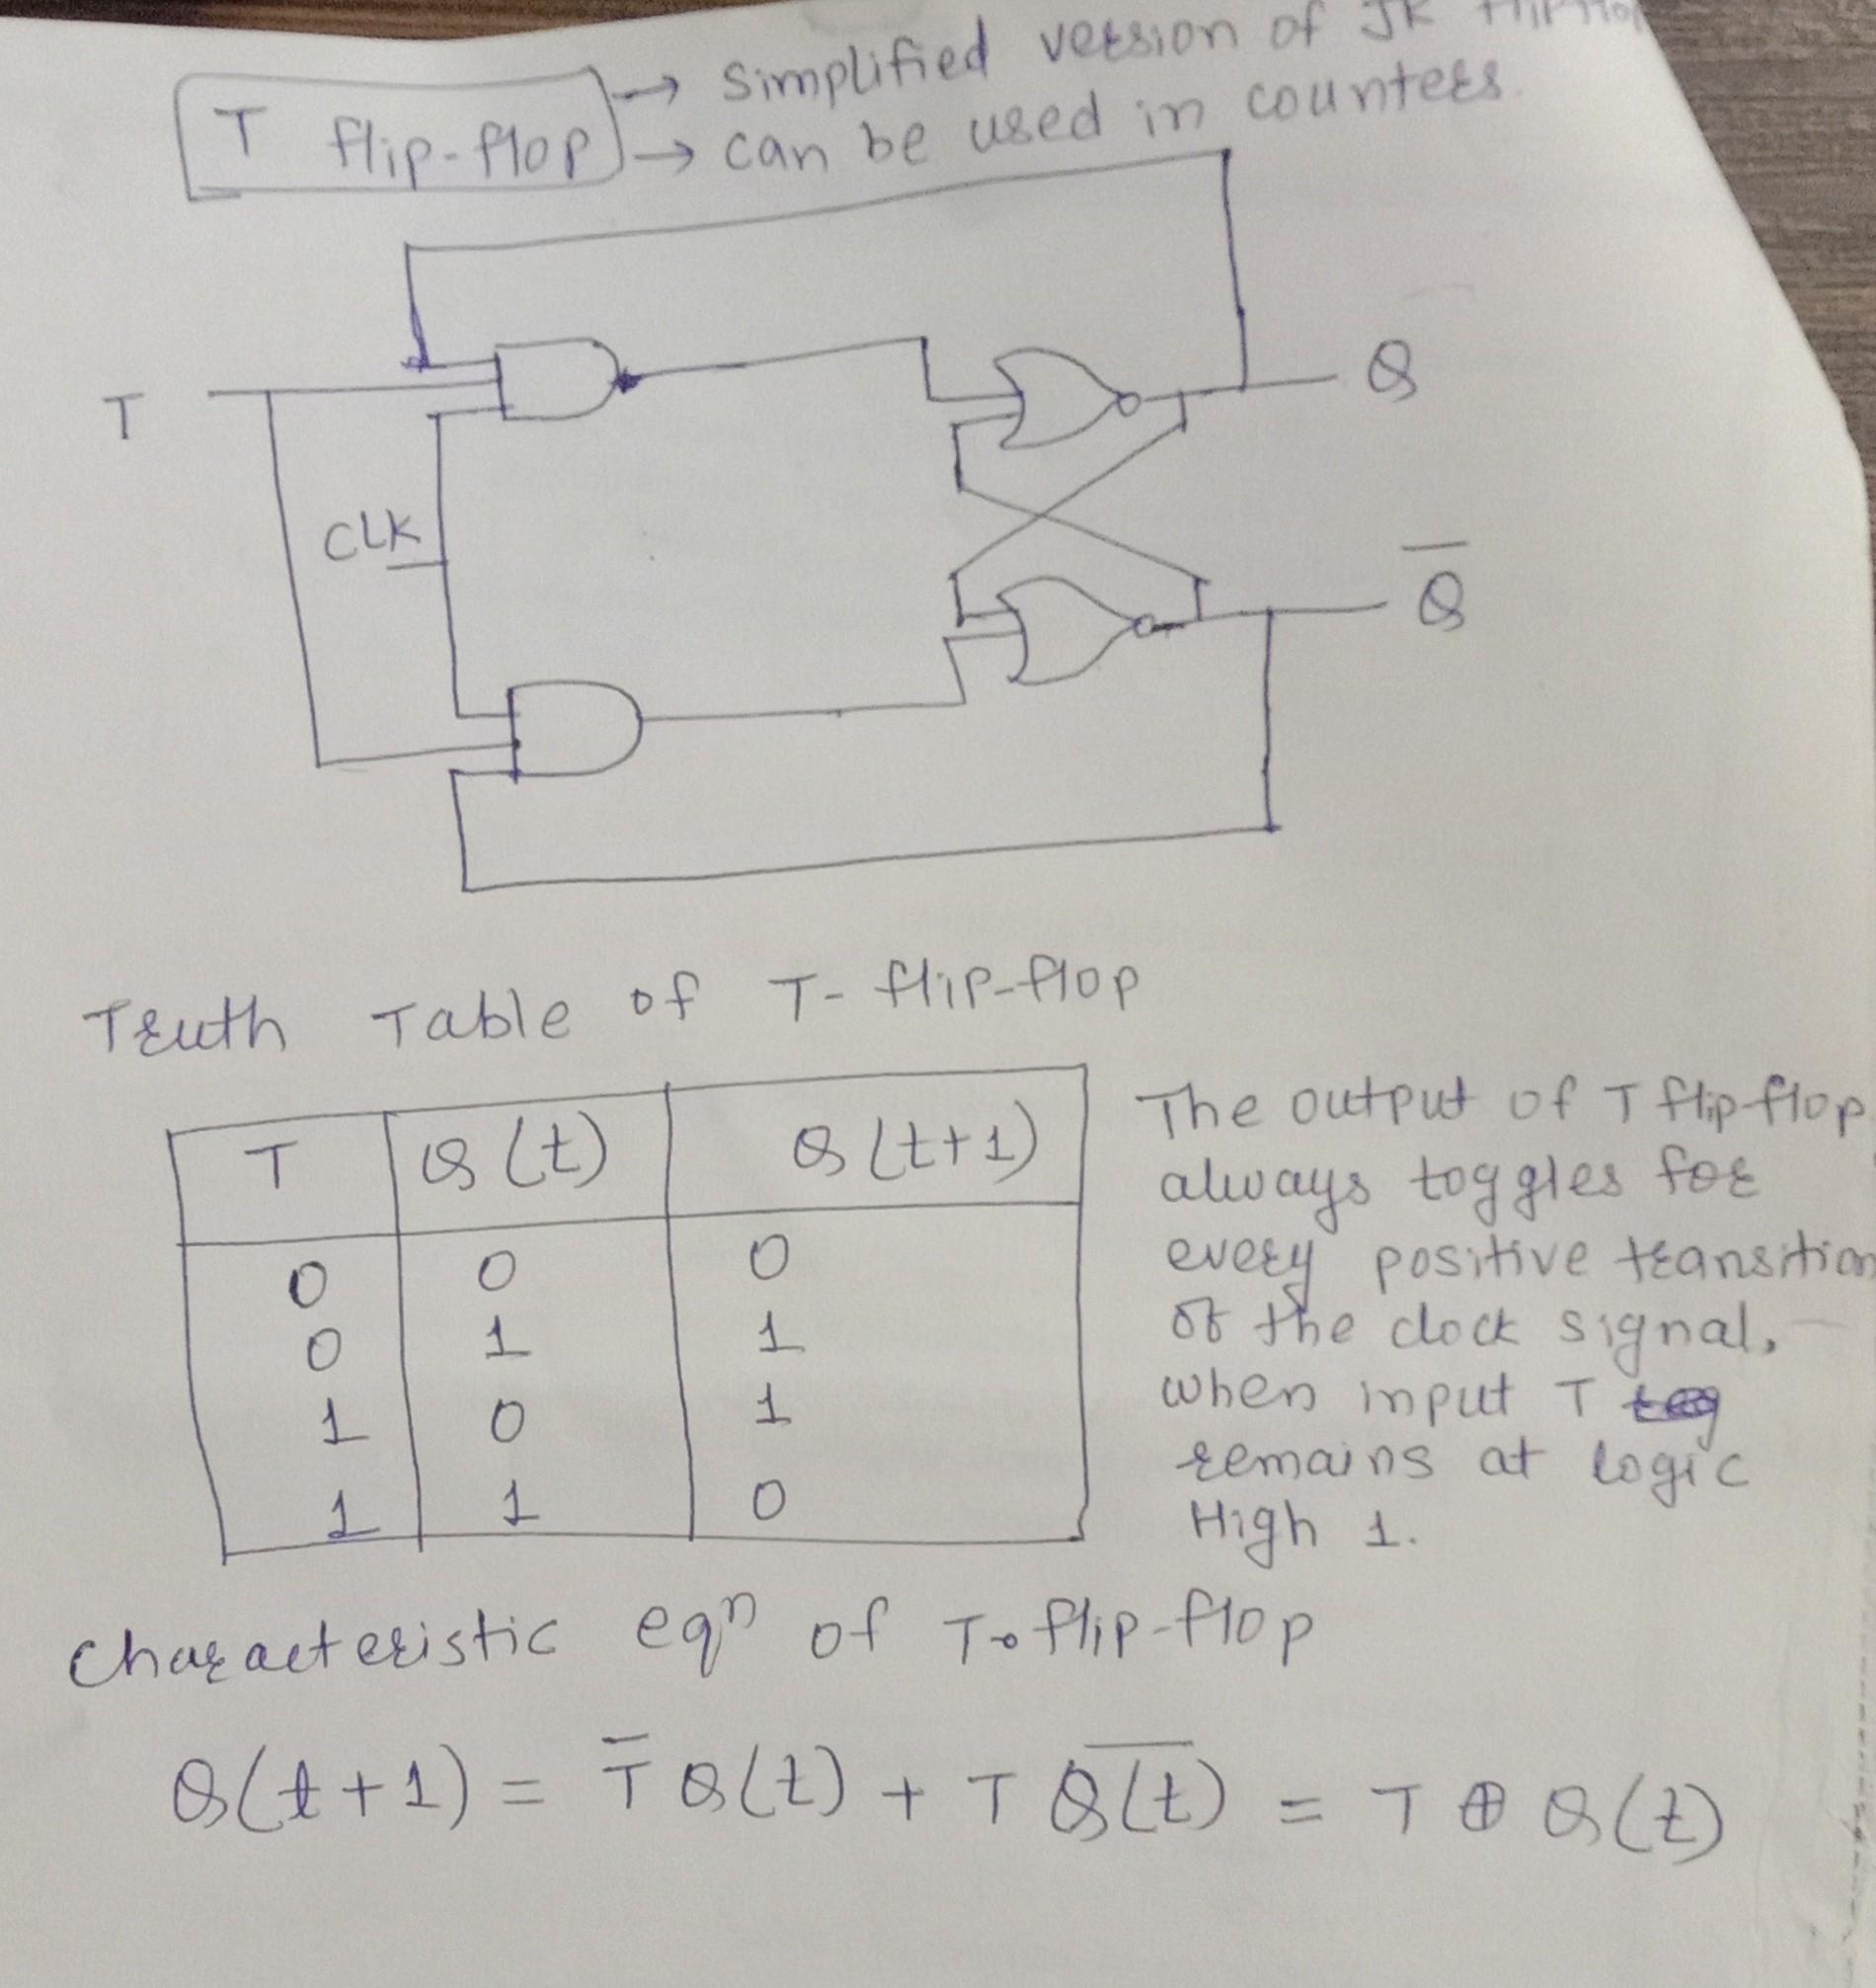 T flip-flop → Simplified version of JK flipflop
→ can be used in counters.
T
CLK
Q
Q̅
Truth Table of T- flip-flop
T Q(t) Q(t+1)
0 0 0
0 1 1
1 0 1
1 1 0
The output of T flip-flop
always toggles for
every positive transition
of the clock signal,
when input T
remains at logic
High 1.
Characteristic eqⁿ of T-flip-flop
Q(t+1) = T̅ Q(t) + T Q̅(̅t̅)̅ = T ⊕ Q(t)